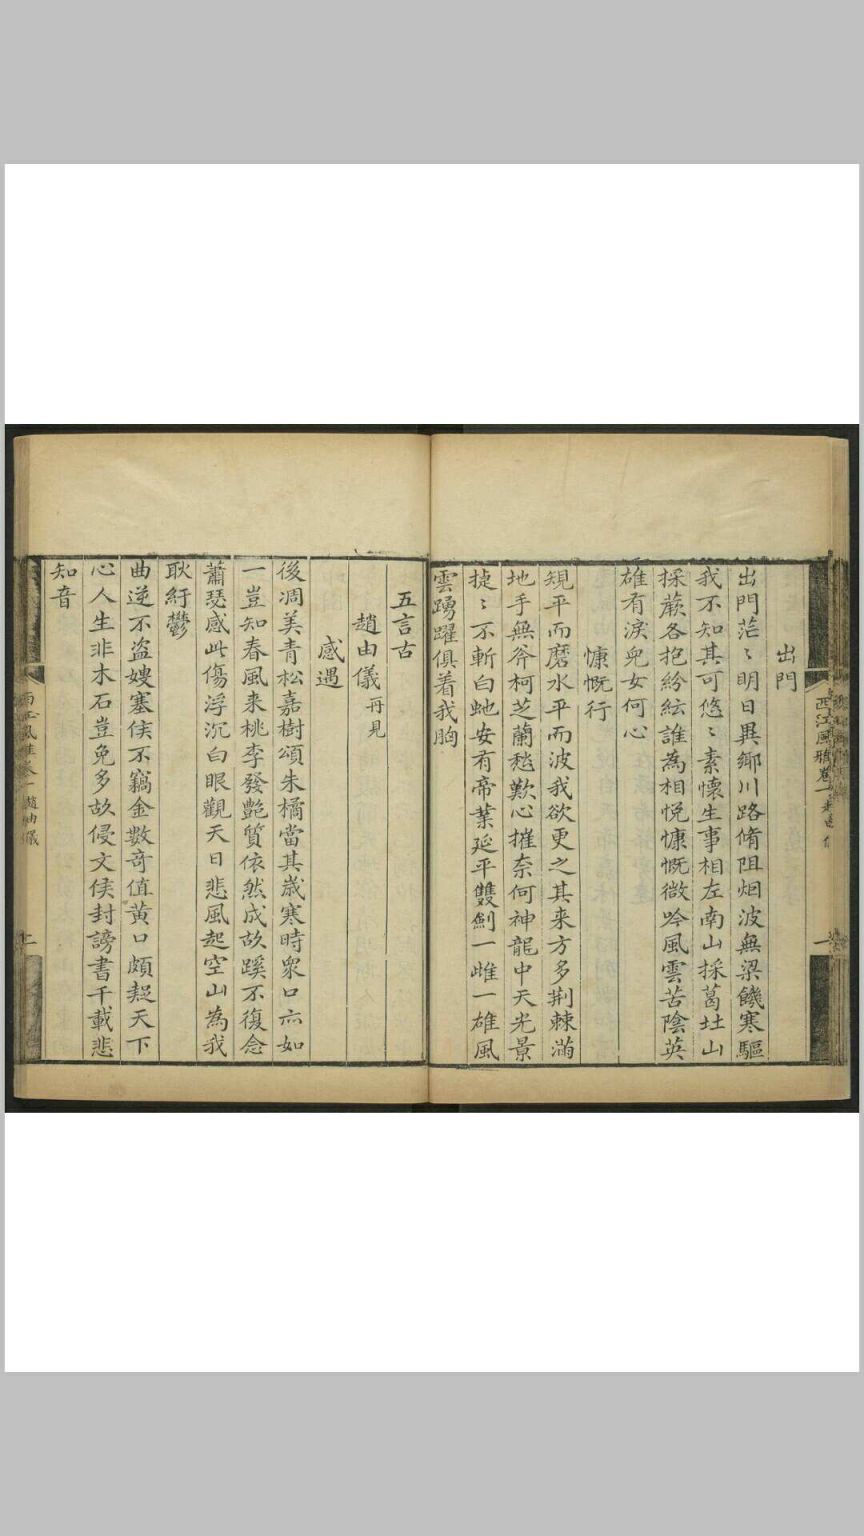 出門
出門茫〻明日異鄉川路脩阻烟波無梁饑寒驅
我不知其可悠〻素懷生事相左南山採葛𡉏山
採蕨各抱紛紜誰為相悅慷慨微吟風雲苦陰英
雄有淚兒女何心
慷慨行
規平而磨水平而波我欲更之其来方多荆棘滿
地手無斧柯芝蘭秋歎心摧奈何神龍中天光景
捷〻不斬白虵安有帝業延平雙劍一雌一雄風
雲踴躍俱着我胸
西江風雅卷一
五言古
趙由儀再見
感遇
後凋美青松嘉樹頌朱橘當其歲寒時衆口亦如
一豈知春風来桃李發艷質依然成故蹊不復念
蕭瑟感此傷浮沉白眼觀天日悲風起空山為我
耿紆鬱
曲逆不盜嫂塞侯不竊金數奇值黃口頗起天下
心人生非木石豈免多故侵文侯封謗書千載悲
知音
西江風雅卷一 趙由儀 二